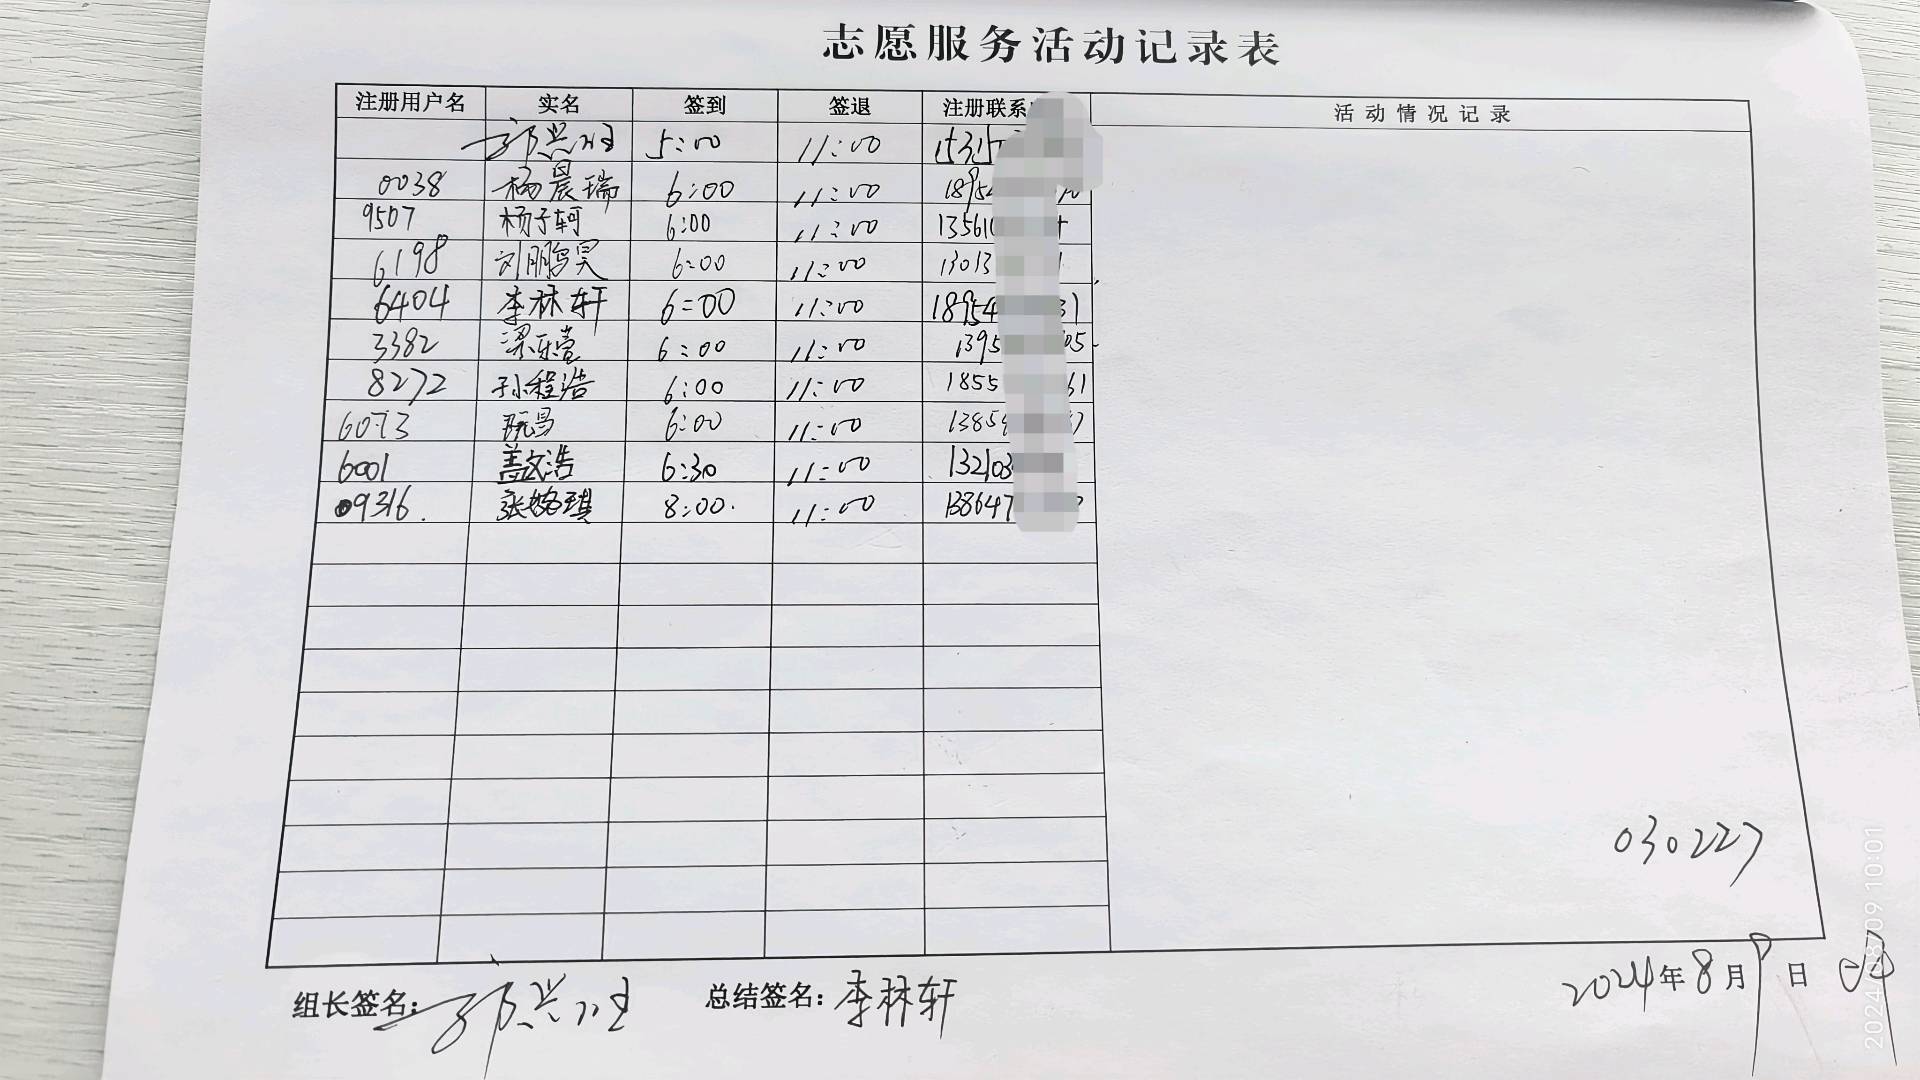 志愿服务活动记录表
注册用户名 实名 签到 签退 注册联系 活动情况记录
5:00 11:00 15315
0038 杨晨瑞 6:00 11:00 1895
9507 杨子轲 6:00 11:00 13561
6198 刘鹏昊 6:00 11:00 13013
6404 李林轩 6:00 11:00 18954 31
3382 梁乐萱 6:00 11:00 1395 05
8272 孙程浩 6:00 11:00 1855 61
6073 阮昌 6:00 11:00 1385
6001 盖文浩 6:30 11:00 132103
09316. 张 琪 8:00. 11:00 138647
030227
组长签名: 总结签名: 李林轩 2024年8月9日
2024/08/09 10:01